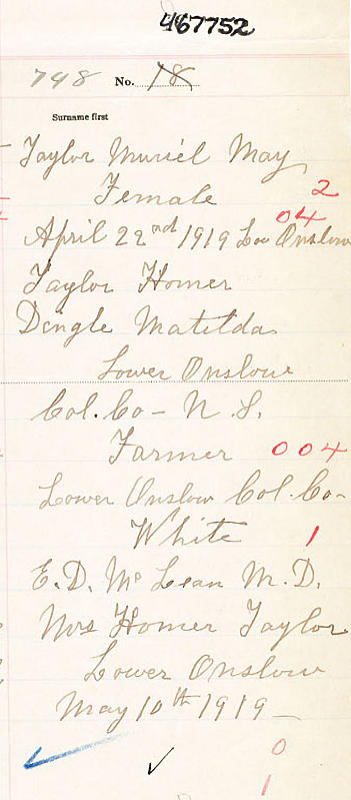 467752
748 No. 18
Surname first
Taylor Muriel May
Female 2
04
April 22nd 1919 Low Onslow
Taylor Homer
Dingle Matilda
Lower Onslow
Col. Co - N.S.
Farmer 004
Lower Onslow Col. Co-
White 1
E.D. Mc Lean M.D.
Mrs Homer Taylor
Lower Onslow
May 10th 1919
0
1